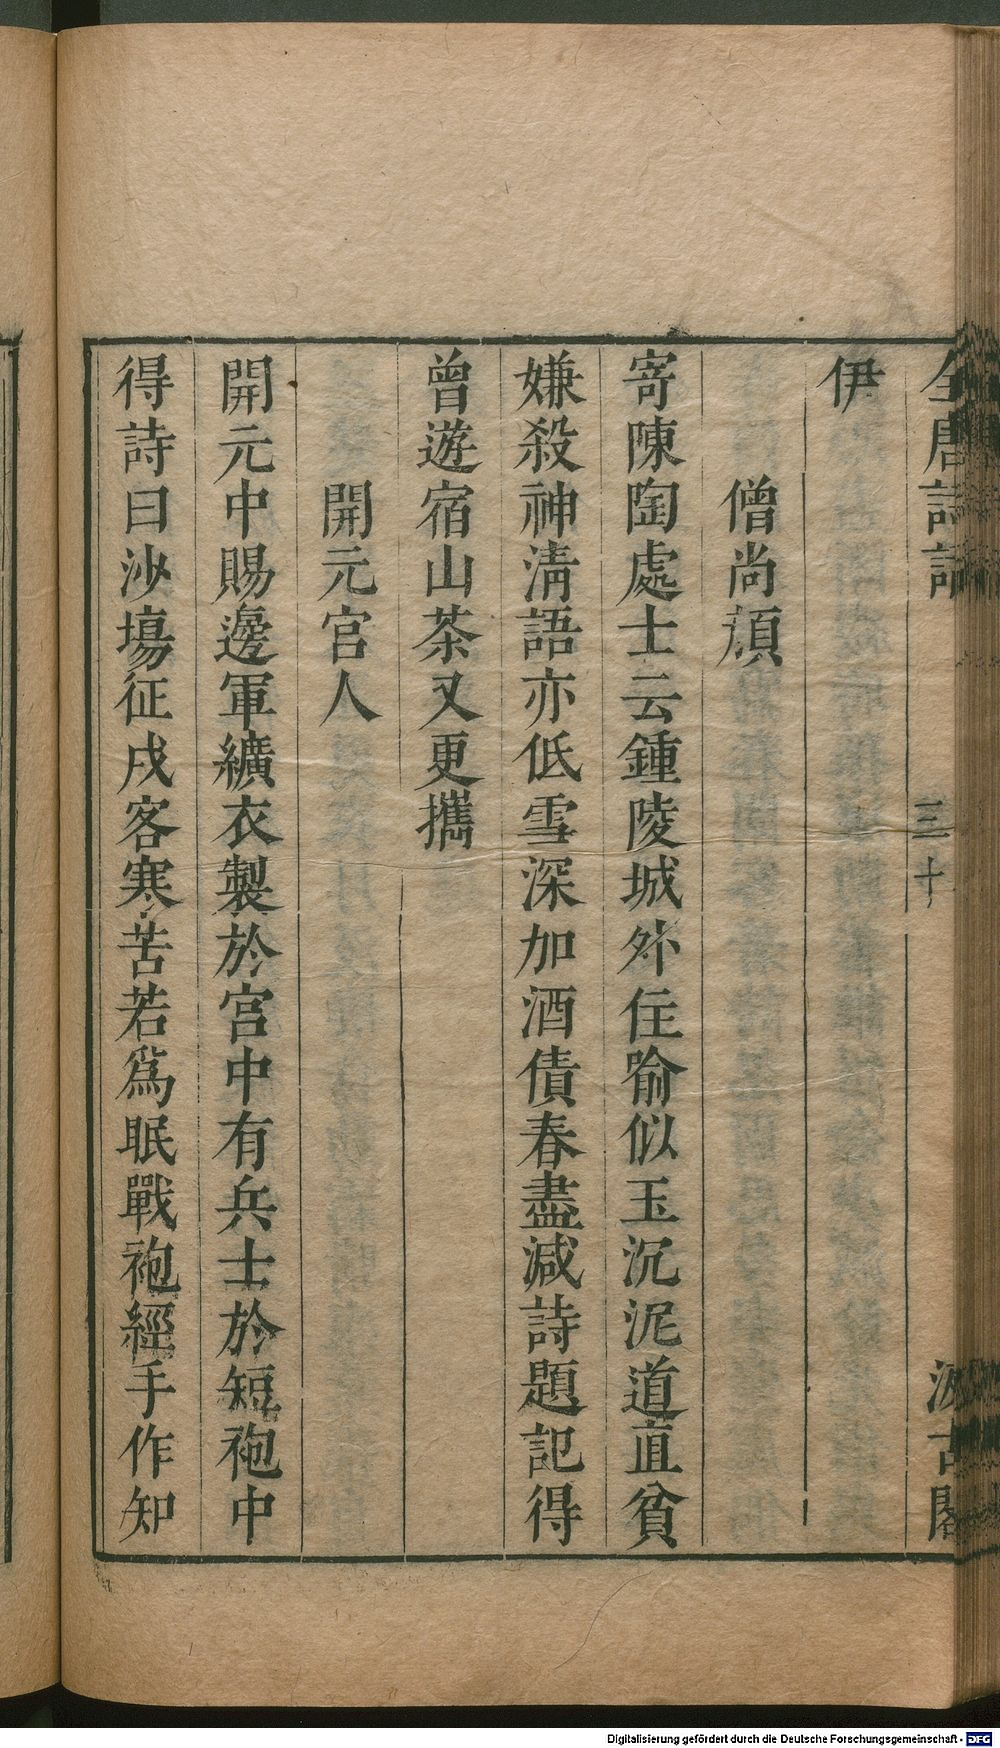 全唐詩話 三十 汲古閣
伊
僧尚顏
寄陳陶處士云鍾陵城外住喻似玉沉泥道直貧
嫌殺神淸語亦低雪深加酒債春盡減詩題記得
曾遊宿山茶又更攜
開元宮人
開元中賜邊軍纊衣製於宮中有兵士於短袍中
得詩曰沙塲征戍客寒苦若爲眠戰袍經手作知
Digitalisierung gefördert durch die Deutsche Forschungsgemeinschaft - DFG